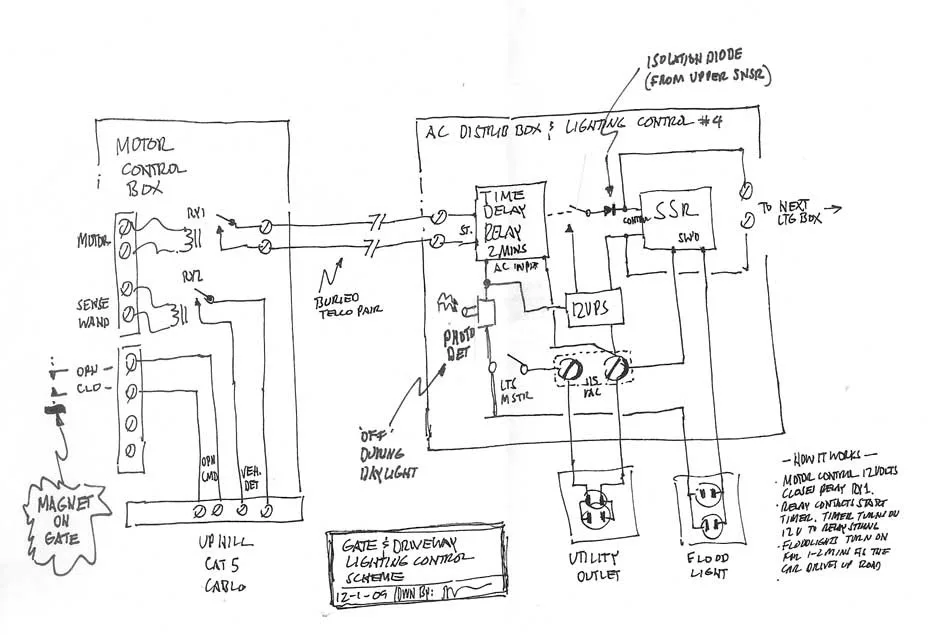 ISOLATION DIODE
(FROM UPPER SNSR)
MOTOR
CONTROL
BOX
AC DISTRIB BOX & LIGHTING CONTROL #4
RY1
MOTOR
TIME
DELAY
RELAY
2 MINS
ST.
AC INPUT
CONTROL
SSR
SW'D
TO NEXT
LTG BOX
RY2
SENSE
WAND
BURIED
TELCO PAIR
12VPS
PHOTO
DET
OPN
CLD
LTS
MSTR
115
VAC
'OFF'
DURING
DAYLIGHT
OPN
CMD
VEH.
DET
MAGNET
ON
GATE
UPHILL
CAT 5
CABLO
GATE & DRIVEWAY
LIGHTING CONTROL
SCHEME
12-1-09 DWN BY:
UTILITY
OUTLET
FLOOD
LIGHT
— HOW IT WORKS —
· MOTOR CONTROL 12VOLTS
CLOSES RELAY RY1.
· RELAY CONTACTS START
TIMER. TIMER TURNS ON
12V TO RELAY STRING
· FLOODLIGHTS TURN ON
FOR 1-2 MIN AS THE
CAR DRIVES UP ROAD